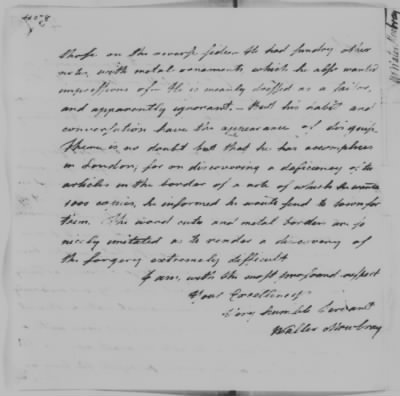 those on the reverse sides. He had sundry other
notes, with metal ornaments, which he also wanted
impressions of. He is meanly dressed as a sailor,
and apparently ignorant. - But his habit and
conversation have the appearance of disguise.
There is no doubt but that he has accomplices
in London; for on discovering a deficiency of the
articles in the border of a note of which he wants
1000 copies, he informed he would send to town for
them. The wood cuts and metal borders are so
nicely imitated as to render a discovery of
the forgery extremely difficult
I am, with the most profound respect
Your Excellency's
Very humble Servant
Walter Mowbray